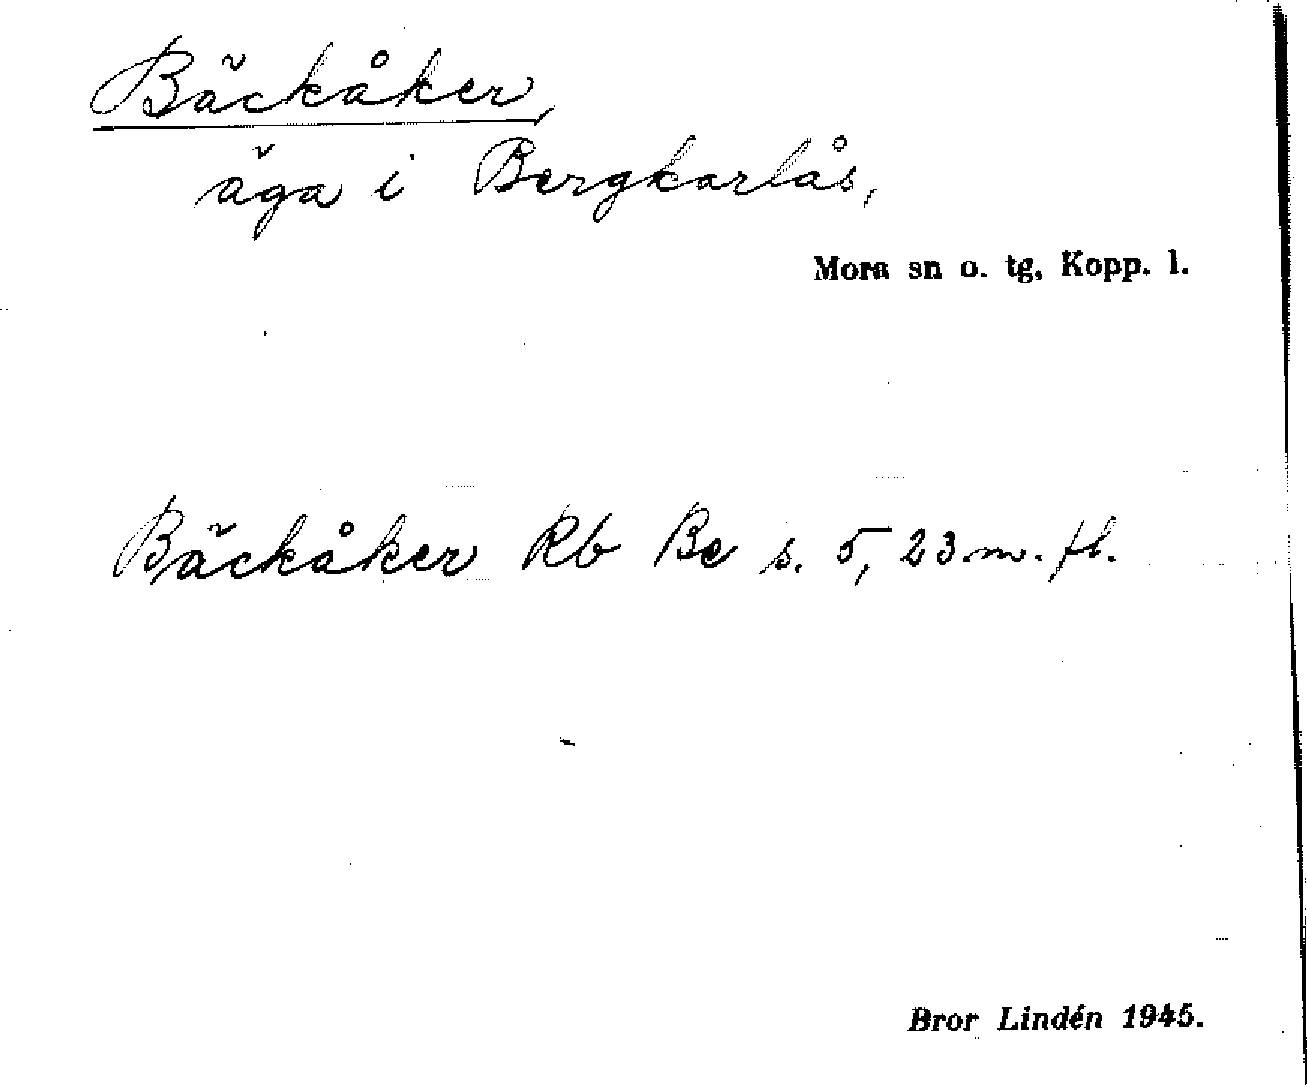 Bäckåker,
äga i Bergkarlås,
Mora sn o. tg, Kopp. l.
Bäckåker Rb Be s. 5, 23 m. fl.
Bror Lindén 1945.